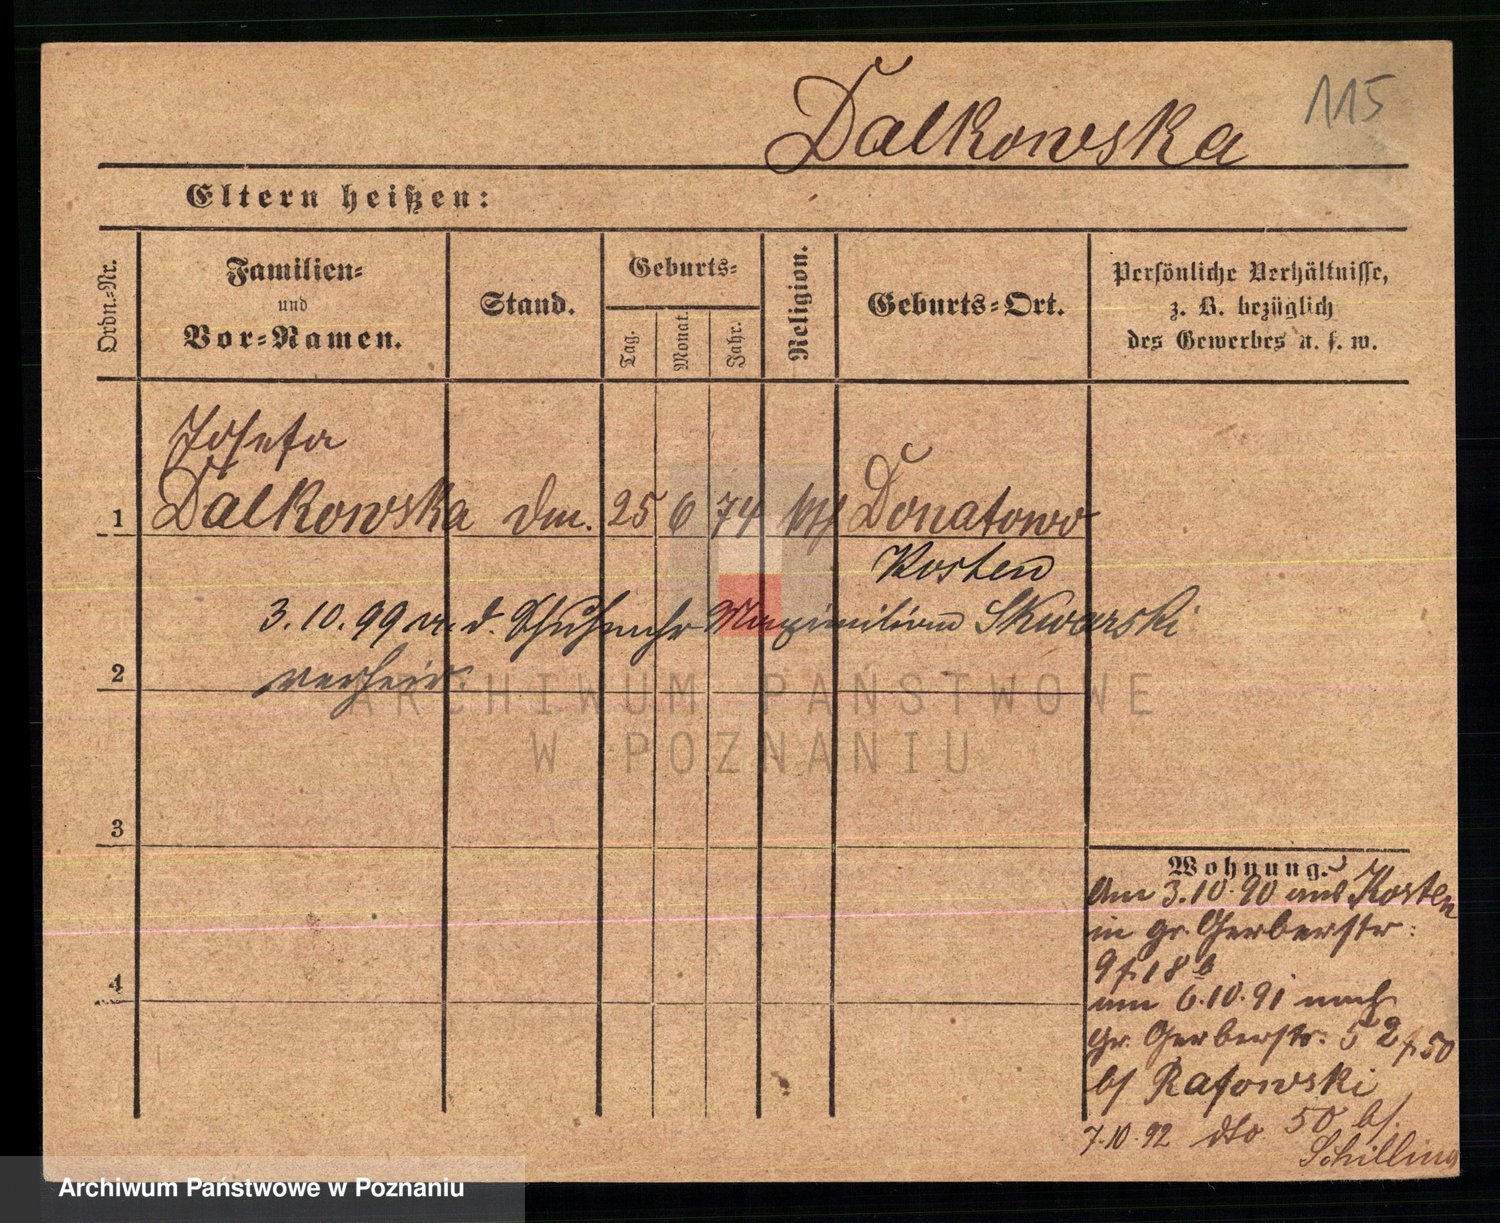 115
Dalkowska
Eltern heißen:
Ordn.-Nr.
Familien-
und
Vor-Namen.
Stand.
Geburts-
Tag.
Monat.
Jahr.
Religion.
Geburts-Ort.
Persönliche Verhältnisse,
z. B. bezüglich
des Gewerbes u. s. w.
Josefa
1 Dalkowska 25 6 74 Donatowo
Kosten
3.10.99 m. d. Schuhmchr Maximilian Skwarski
2 verheir.
ARCHIWUM PAŃSTWOWE
W POZNANIU
3
4
Wohnung.
Am 3.10.90 aus Kosten
in gr. Gerberstr:
am 6.10.91 nach
gr. Gerberstr: 52/50
b/ Ratowski
7.10.92 dto 50 b/.
Schilling
Archiwum Państwowe w Poznaniu